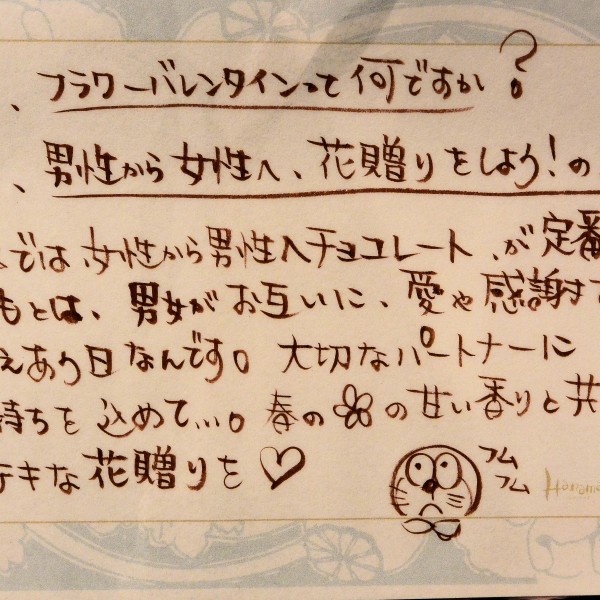 、フラワーバレンタインって何ですか?
、男性から女性へ、花贈りをしよう!の
では、女性から男性へチョコレート、が定番
もとは、男女がお互いに、愛や感謝す
えあう日なんです。大切なパートナーに
持ちを込めて...。春の の甘い香りと共
テキな花贈りを♡
フム
フム